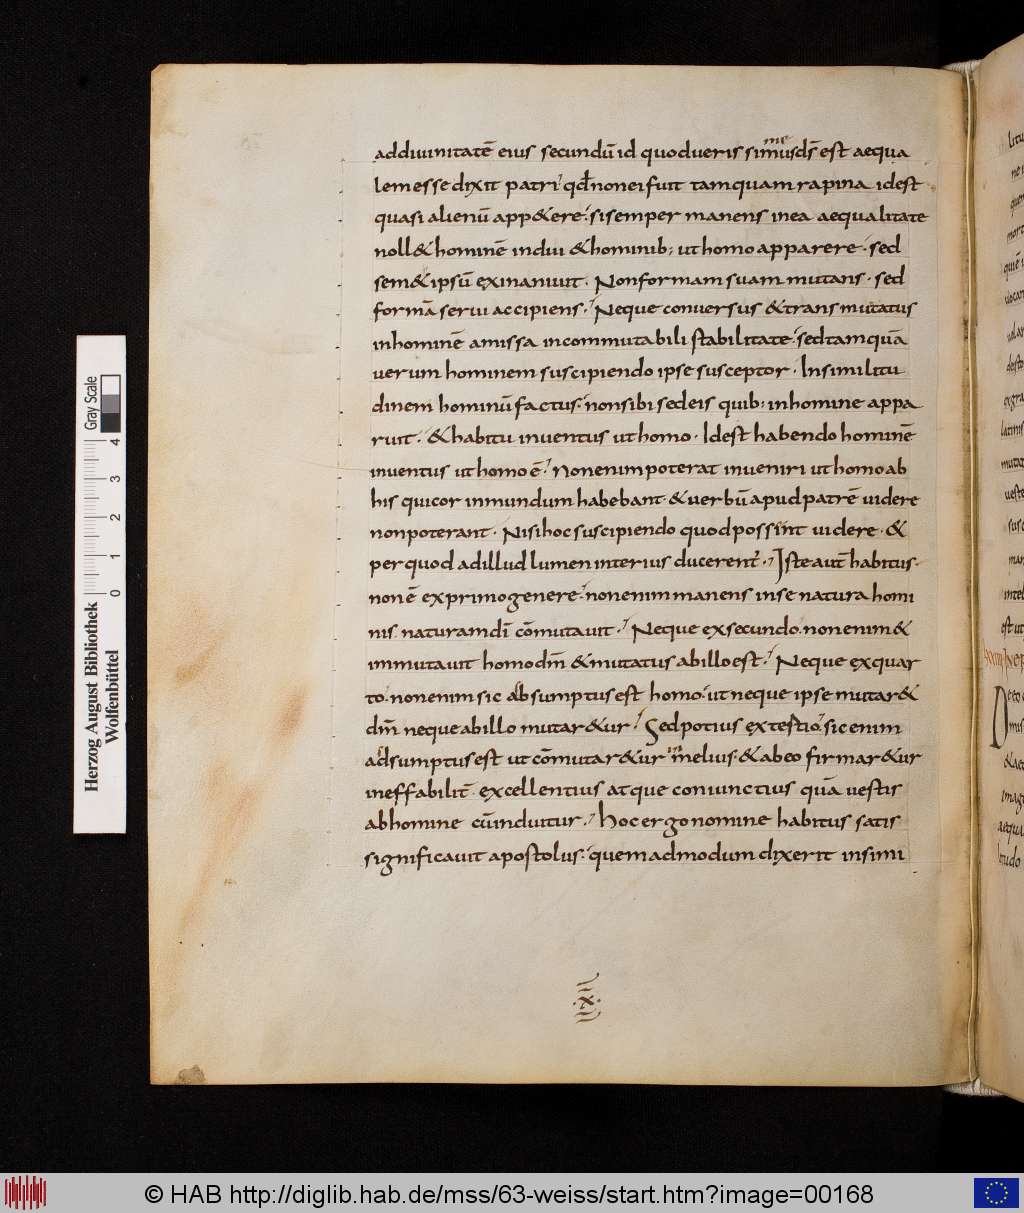 addiuinitatē eius secundū id quodueris simusd̄s est aequa
me
lem esse dixit patri qđ nonei fuit tamquam rapina idest
quasi alienū app&ere. sisemper manens inea aequalitate
noll& hominē indui & hominib; ut homo apparere. sed
sem&ipsū exinaniuit. Nonformam suam mutans. sed
formā serui accipiens. Neque conuersus & transmutatus
inhominē amissa incommutabili stabilitate. sedtamquā
uerum hominem suscipiendo ipse susceptor. Insimilitu
dinem hominū factus. nonsibi sedeis quib; inhomine appa
ruit. & habitu inuentus ut homo. Idest habendo hominē
inuentus ut homo ē. Nonenim poterat inueniri ut homo ab
his qui cor inmundum habebant. & uerbū apud patrē uidere
nonpoterant. Nisi hoc suscipiendo quod possint uidere. &
per quod adillud lumen interius ducerent. Iste aut̄ habitus.
nonē exprimo genere. nonenim manens inse natura homi
nis naturam dī cōmutauit. Neque exsecundo. nonenim &
immutauit homo dm̄ & mutatus abillo est. Neque exquar
to. nonenim sic absumptus est homo. ut neque ipse mutar&
dm̄ neque abillo mutar&ur. Sed potius ex tertio. sic enim
adsumptus est ut cōmutar&ur in melius. & abeo firmar&ur
ineffabilit̄. excellentius atque coniunctius quā uestis
abhomine cū induitur. Hoc ergo nomine habitus satis
significauit apostolus. quemadmodum dixerit insimi
Herzog August Bibliothek
Wolfenbüttel
0 1 2 3 4
Gray Scale
© HAB http://diglib.hab.de/mss/63-weiss/start.htm?image=00168